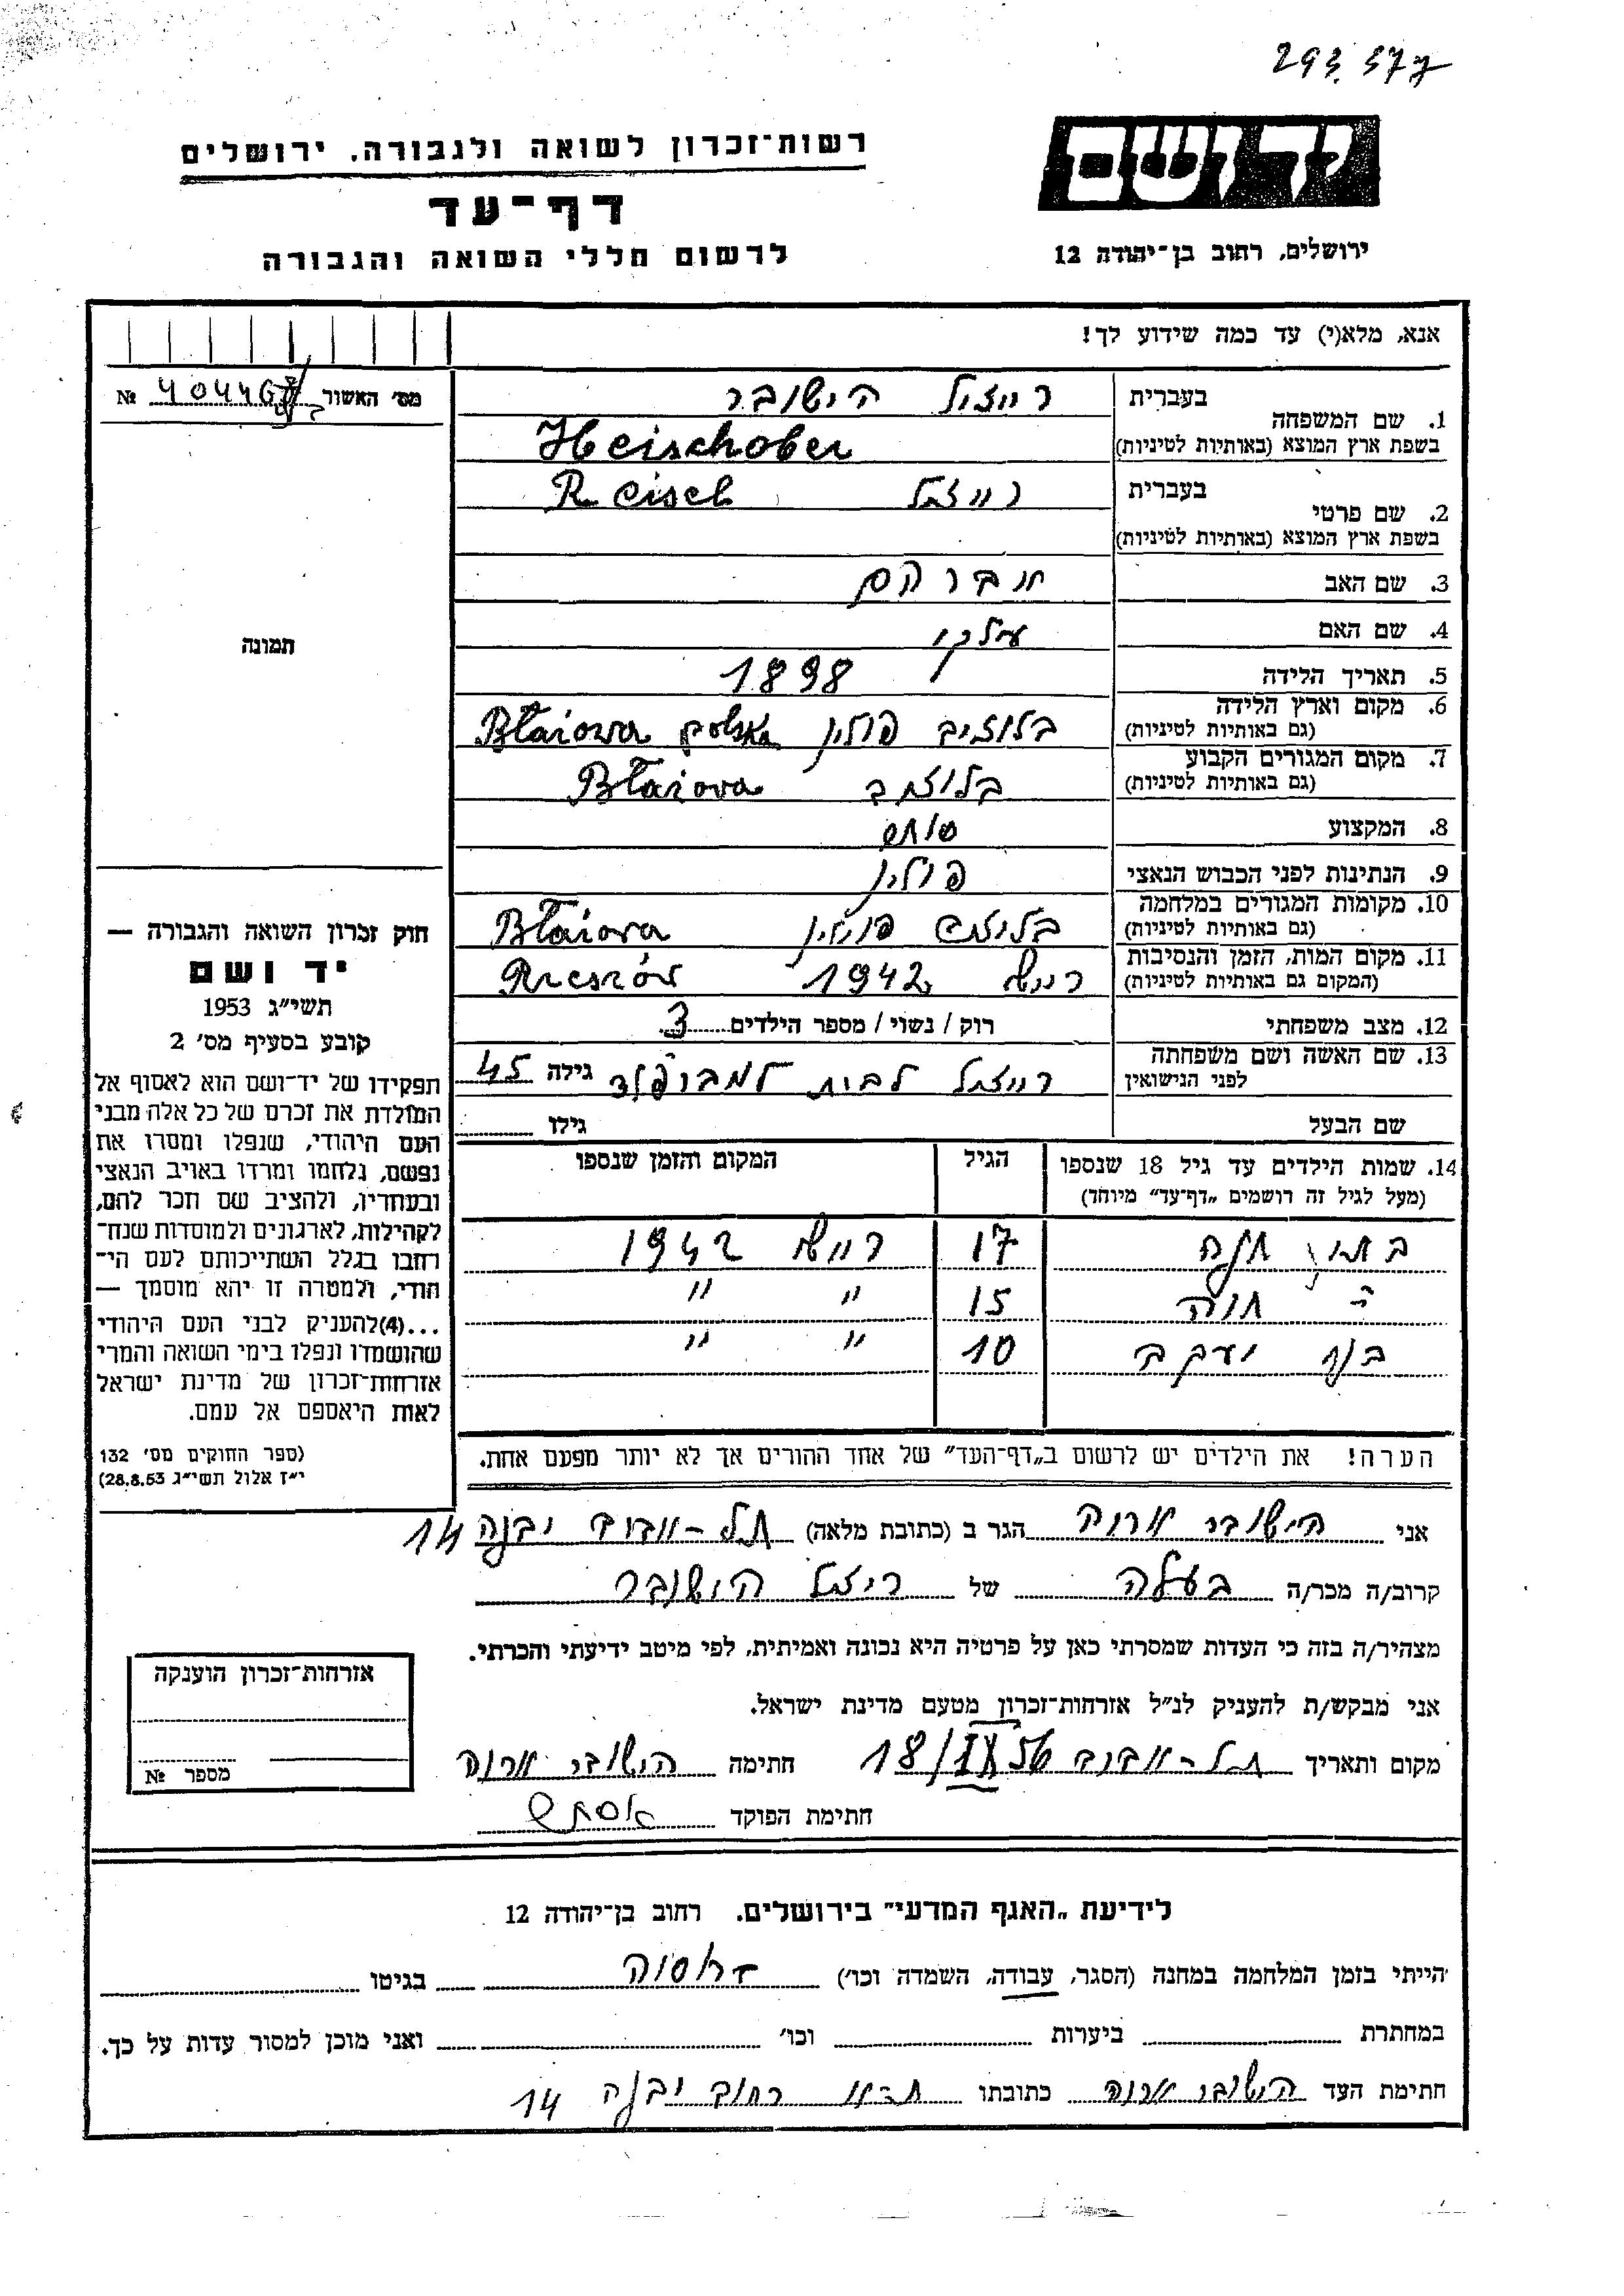 293. 577
רשות־זכרון לשואה ולגבורה. ירושלים
דף־עד
לרשום חללי השואה והגבורה
יד ושם
ירושלים, רחוב בן־יהודה 12
אנא, מלא(י) עד כמה שידוע לך!
מס׳ האשור № 40446
1. שם המשפחה
בעברית הישובר
בשפת ארץ המוצא (באותיות לטיניות) Heischober
2. שם פרטי
בעברית רייזל Reisel
בשפת ארץ המוצא (באותיות לטיניות)
3. שם האב
4. שם האם
5. תאריך הלידה 1898
6. מקום וארץ הלידה
(גם באותיות לטיניות) פולין Błażowa polska
7. מקום המגורים הקבוע
(גם באותיות לטיניות) Błażowa
8. המקצוע סוחר
9. הנתינות לפני הכבוש הנאצי פולין
10. מקומות המגורים במלחמה
(גם באותיות לטיניות) פולין Błażowa
11. מקום המות, הזמן והנסיבות
(המקום גם באותיות לטיניות) 1942 Rzeszów
12. מצב משפחתי רוק / נשוי / מספר הילדים 3
13. שם האשה ושם משפחתה
לפני הנישואין לבית גילה 45
שם הבעל גילו
14. שמות הילדים עד גיל 18 שנספו
(מעל לגיל זה רושמים „דף־עד״ מיוחד)
הגיל
המקום והזמן שנספו
17 1942
חוה 15 ״ ״
בן יעקב 10 ״ ״
הערה! את הילדים יש לרשום ב„דף־העד״ של אחד ההורים אך לא יותר מפעם אחת.
תמונה
חוק זכרון השואה והגבורה —
יד ושם
תשי״ג 1953
קובע בסעיף מס׳ 2
תפקידו של יד־ושם הוא לאסוף אל
המולדת את זכרם של כל אלה מבני
העם היהודי, שנפלו ומסרו את
נפשם, נלחמו ומרדו באויב הנאצי
ובעוזריו, ולהציב שם וזכר להם,
לקהילות, לארגונים ולמוסדות שנח־
רבו בגלל השתייכותם לעם הי־
הודי, ולמטרה זו יהא מוסמך —
...(4)להעניק לבני העם היהודי
שהושמדו ונפלו בימי השואה והמרי
אזרחות־זכרון של מדינת ישראל
לאות היאספם אל עמם.
(ספר החוקים מס׳ 132
י״ז אלול תשי״ג 28.8.53)
אני הישובר אריה הגר ב (כתובת מלאה) תל-אביב יבנה 14
קרוב/ה מכר/ה בעלה של רייזל הישובר
מצהיר/ה בזה כי העדות שמסרתי כאן על פרטיה היא נכונה ואמיתית, לפי מיטב ידיעתי והכרתי.
אני מבקש/ת להעניק לנ״ל אזרחות־זכרון מטעם מדינת ישראל.
מקום ותאריך תל-אביב 18/IX 56 חתימה הישובר אריה
חתימת הפוקד
אזרחות־זכרון הוענקה
מספר №
לידיעת „האגף המדעי״ בירושלים. רחוב בן־יהודה 12
הייתי בזמן המלחמה במחנה (הסגר, עבודה, השמדה וכו׳) בגיטו
במחתרת ביערות וכו׳ ואני מוכן למסור עדות על כך.
חתימת העד הישובר אריה כתובתו ת״א רחוב יבנה 14